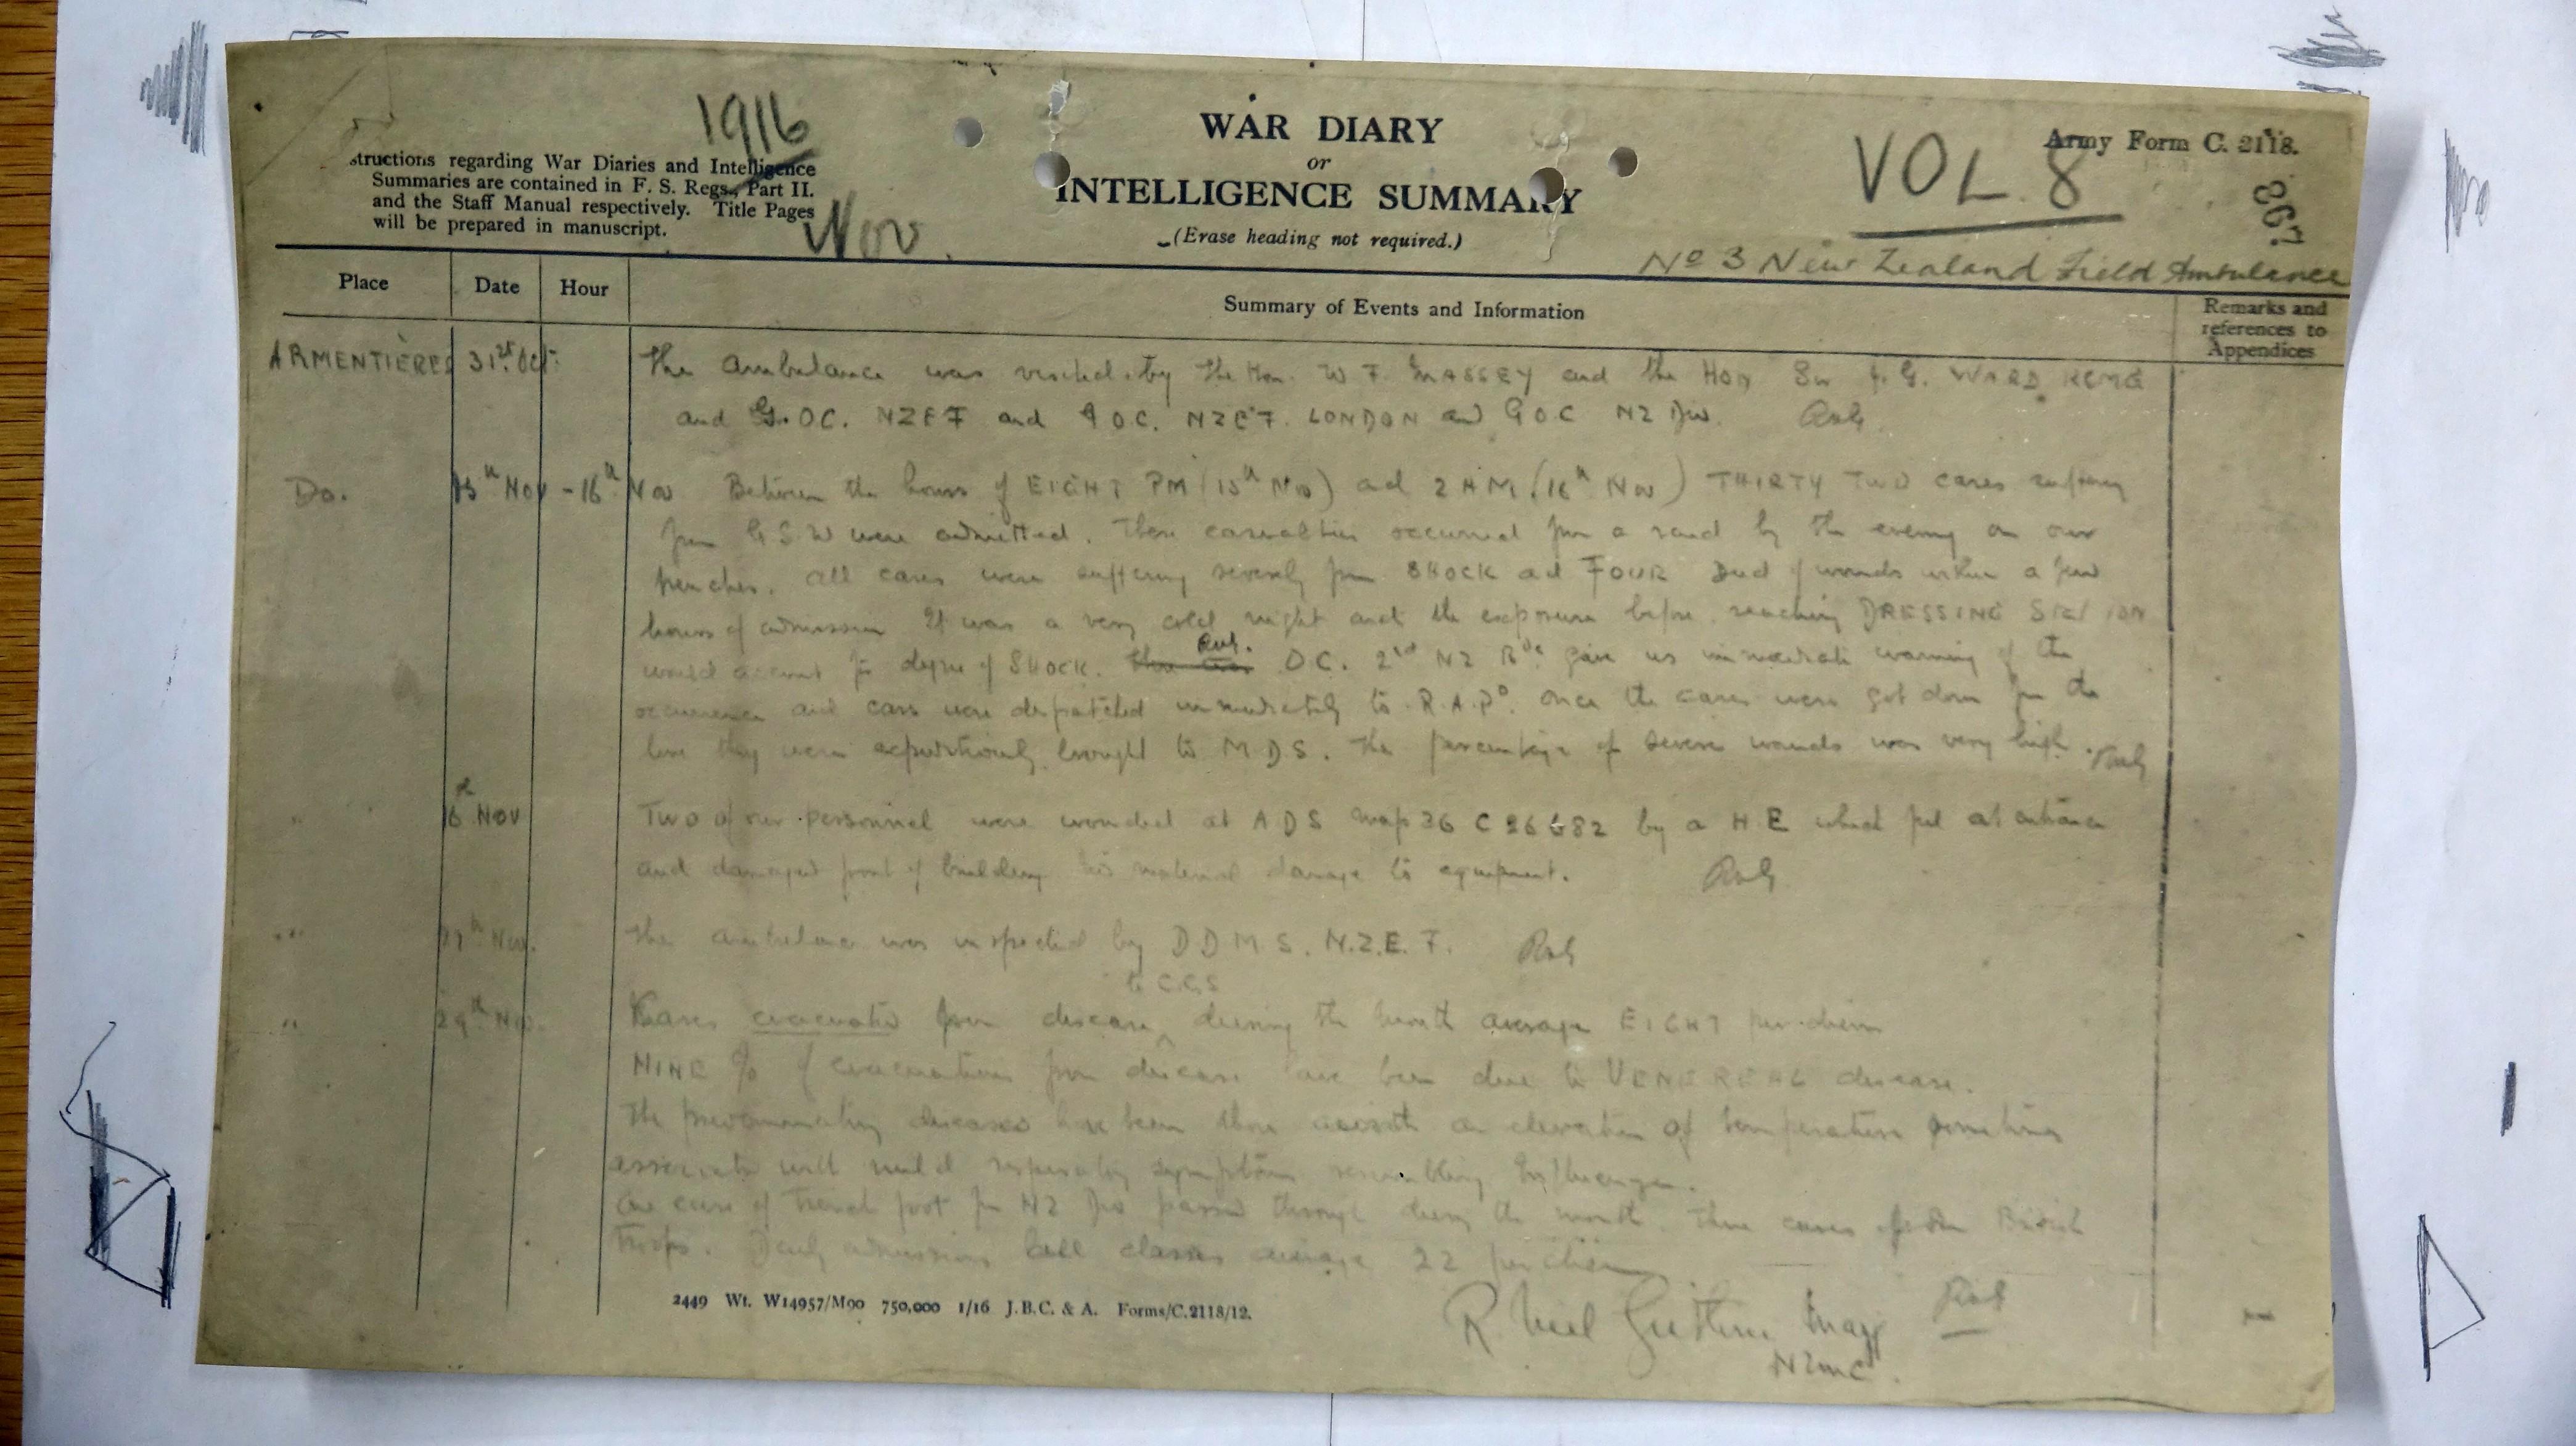 1916
Nov.
structions regarding War Diaries and Intelligence
Summaries are contained in F. S. Regs., Part II.
and the Staff Manual respectively. Title Pages
will be prepared in manuscript.
WAR DIARY
or
INTELLIGENCE SUMMARY
(Erase heading not required.)
VOL. 8
Army Form C. 2118.
No 3 New Zealand Field Ambulance
Place Date Hour Summary of Events and Information Remarks and
references to
Appendices
ARMENTIÈRES 31st Oct. The Ambulance was visited by the Hon. W F. MASSEY and the Hon Sir J. G. WARD KCMG
and G.O.C. NZEF and GOC. NZEF. LONDON and GOC NZ Div.
Do. 15th Nov - 16th Nov Between the hours of EIGHT PM (15th Nov) and 2 AM (16th Nov) THIRTY TWO cases suffering
from G S W were admitted. These casualties occurred from a raid by the enemy on our
trenches. All cases were suffering severely from SHOCK and FOUR Died of wounds within a few
hours of admission It was a very cold night and the exposure before reaching DRESSING STATION
would account for degree of SHOCK. O.C. 2nd NZ Bde gave us immediate warning of the
occurrence and cars were despatched immediately to R.A.Ps. Once the cases were got down from the
line they were expeditiously brought to M D S. The percentage of severe wounds was very high.
16th Nov Two of our personnel were wounded at A D S map 36 C 26 b 82 by a H E which fell at entrance
and damaged front of building. No material damage to equipment.
" 27th Nov. The ambulance was inspected by D D M S. N.Z.E.F.
to C.C.S
" 29th Nov. Cases evacuated from disease during the month average EIGHT per diem
NINE % of evacuations from disease have been due to VENEREAL disease.
The predominating diseases have been those with an elevation of temperature sometimes
associated with mild respiratory symptoms resembling Influenza.
One case of Trench foot from NZ Div passed through during the month. Three cases from British
Troops. Daily admissions all classes average 22 per diem
Majr
NZMC.
2449 Wt. W14957/M90 750,000 1/16 J.B.C. & A. Forms/C.2118/12.